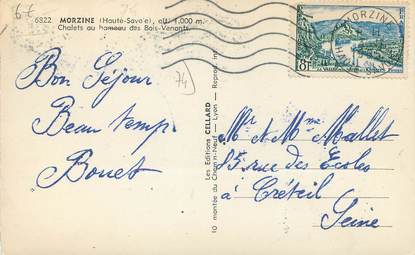 67
6322 MORZINE (Haute-Savoie), alt. 1.000 m.
Chalets au hameau des Bois-Venants.
74
MORZINE
8F
Bon Séjour
Beau temps
Les Editions CELLARD
10 montée du Chemin-Neuf — Lyon — Reprod. int
Mr et Mme Mallet
25 rue des Ecoles
à Créteil
Seine